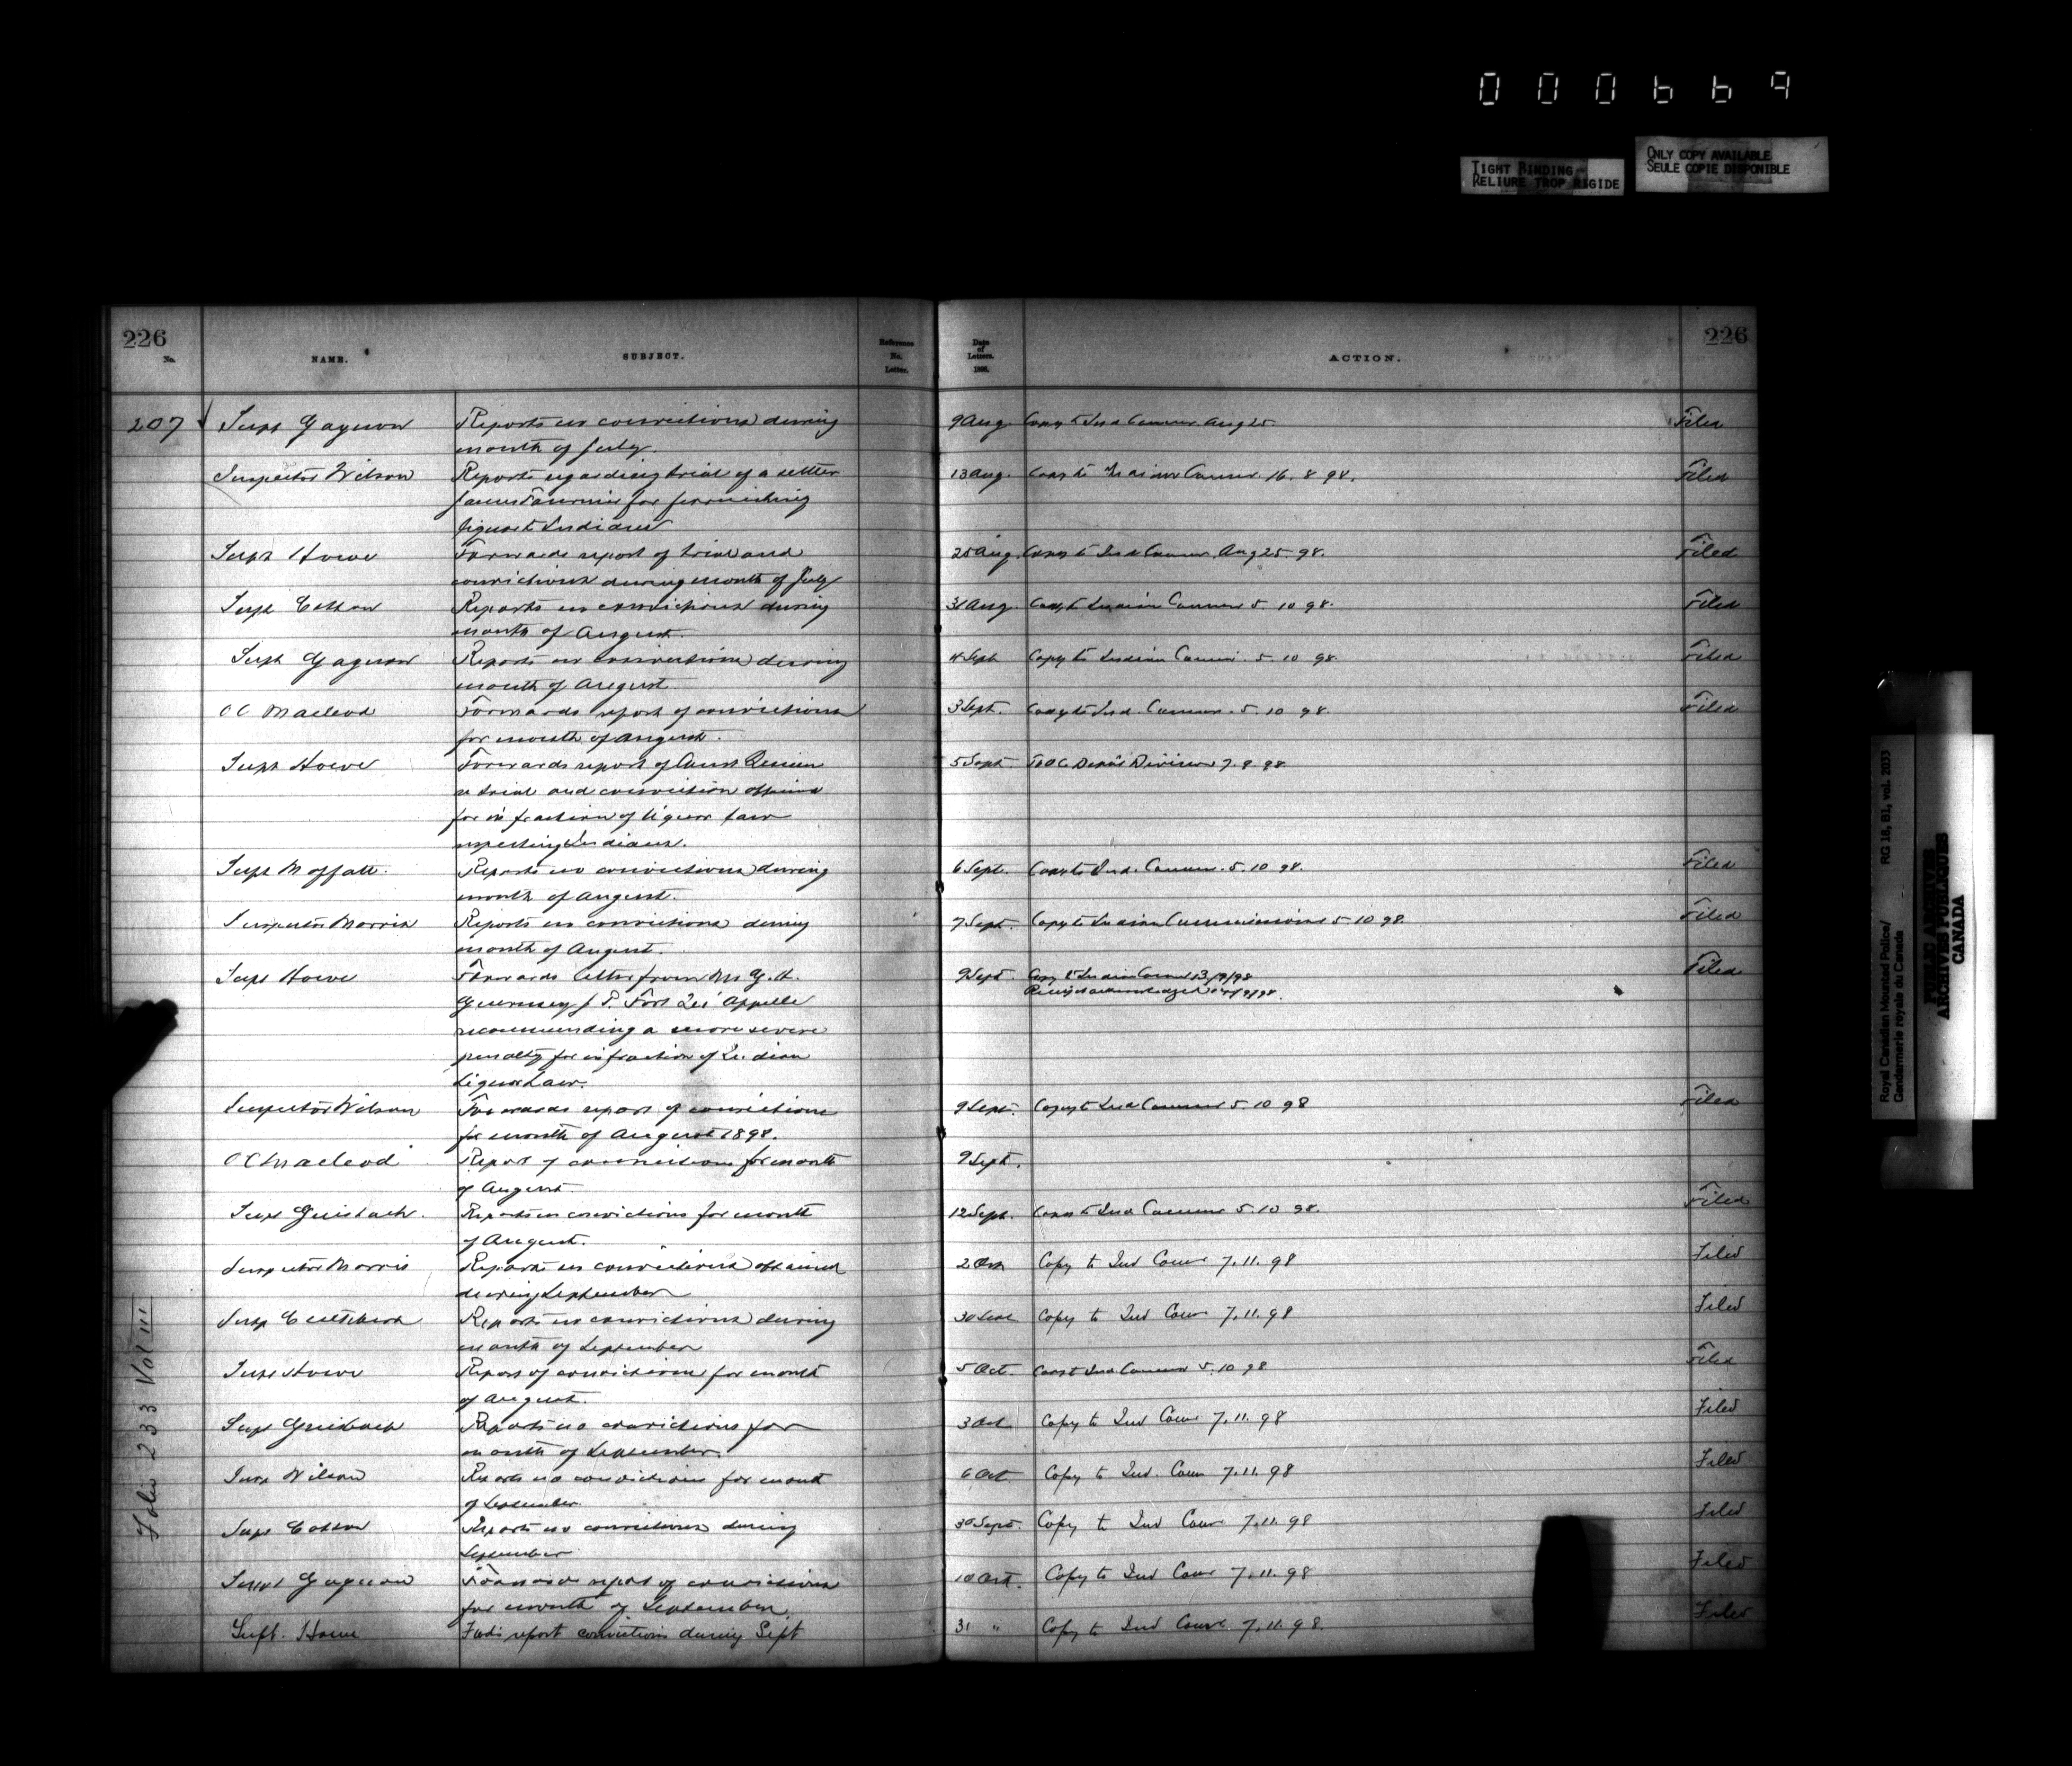 000669
TIGHT BINDING
RELIURE TROP RIGIDE
ONLY COPY AVAILABLE
SEULE COPIE DISPONIBLE
226
No.
NAME.
SUBJECT.
Reference
No.
Letter.
Date
of
Letters.
1898.
ACTION.
226
207 Supt Gagnon Reports no convictions during 9 Aug Copy to Ind Commr. Aug 25 Filed
month of July.
Inspector Wilson Reports regarding trial of a settler 13 Aug. Copy to Commr. 16. 8 98. Filed
James for furnishing
liquor to Indians
Supt Howe Forwards report of trial and 25 Aug. Copy to Ind Commr. Aug 25 98. Filed
convictions during month of July
Supt Cotton Reports no convictions during 31 Aug. Copy to Indian Commr 5. 10 98. Filed
month of August.
Supt Gagnon Reports no convictions during 4 Sept Copy to Indian Commr. 5. 10 98. Filed
month of August
OC Macleod Forwards report of convictions 3 Sept. Copy to Ind. Commr. 5. 10 98. Filed
for month of August.
Supt Howe Forwards report of Const 5 Sept To OC Depot Division 7. 9. 98
re trial and conviction obtained
for infraction of liquor law
respecting Indians.
Supt Moffatt. Reports no convictions during 6 Sept. Copy to Ind. Commr. 5. 10 98. Filed
month of August.
Inspector Morris Reports no convictions during 7 Sept. Copy to Indian Commissioner 5. 10 98. Filed
month of August.
Supt Howe Forwards letter from Mr G. H. 9 Sept Copy to Indian Commr 13/9/98 Filed
Guernsey J. P. Fort Qu'Appelle Receipt acknowledged /9/98.
recommending a more severe
penalty for infraction of Indian
Liquor Law.
Inspector Wilson Forwards report of convictions 9 Sept. Copy to Ind Commr 5. 10 98 Filed
for month of August 1898.
OC Macleod Report of convictions for month 9 Sept.
of August.
Supt Griesbach. Reports no convictions for month 12 Sept. Copy to Ind Commr 5. 10 98. Filed
of August.
Inspector Morris Reports no convictions obtained 2 Oct Copy to Ind Comr 7. 11. 98 Filed
during September
Insp Cuthbert Reports no convictions during 30 Sept Copy to Ind Comr 7. 11. 98 Filed
month of September
Supt Howe Report of convictions for month 5 Oct. Copy to Ind Commr 5. 10 98 Filed
of August.
Supt Griesbach Reports no convictions for 3 Oct Copy to Ind Comr 7. 11. 98 Filed
month of September.
Insp Wilson Reports no convictions for month 6 Oct Copy to Ind. Comr 7. 11. 98 Filed
of September.
Supt Cotton Reports no convictions during 30 Sept. Copy to Ind Comr. 7. 11. 98 Filed
September
Supt Gagnon Forwards report of convictions 10 Oct. Copy to Ind Comr 7. 11. 98 Filed
for month of September.
Supt. Howe Fwds report convictions during Sept 31 " Copy to Ind Comr. 7. 11. 98. Filed
Folio 233 Vol III
Royal Canadian Mounted Police/
Gendarmerie royale du Canada
RG 18, B1, vol. 2033
PUBLIC ARCHIVES
ARCHIVES PUBLIQUES
CANADA